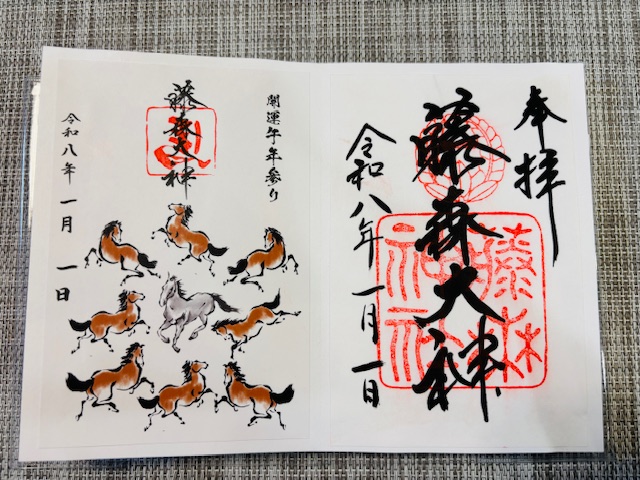 奉拝
藤森大神
令和八年一月一日
藤森
神社
開運午年参り
藤森大神
令和八年 一月 一日